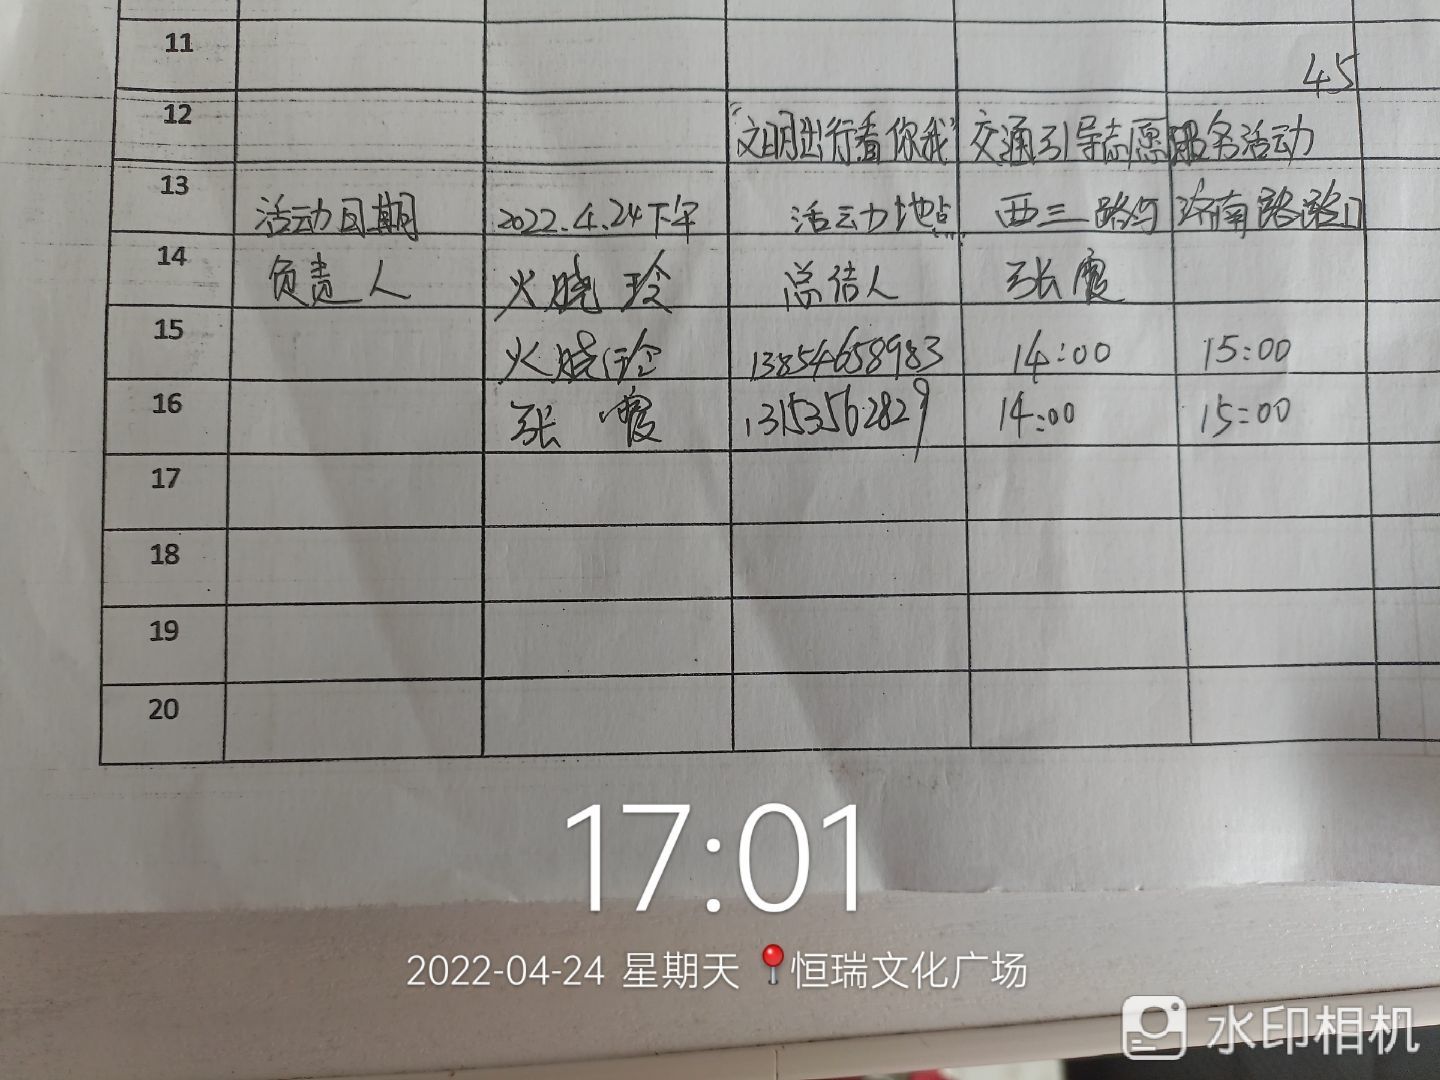 11
45
12 "文明出行看你我" 交通引导志愿服务活动
13 活动日期 2022.4.24下午 活动地点 西三路与济南路路口
14 负责人 火晓玲 总结人 张霞
15 火晓玲 13854658983 14:00 15:00
16 张霞 13153562829 14:00 15:00
17
18
19
20
17:01
2022-04-24 星期天 恒瑞文化广场
水印相机